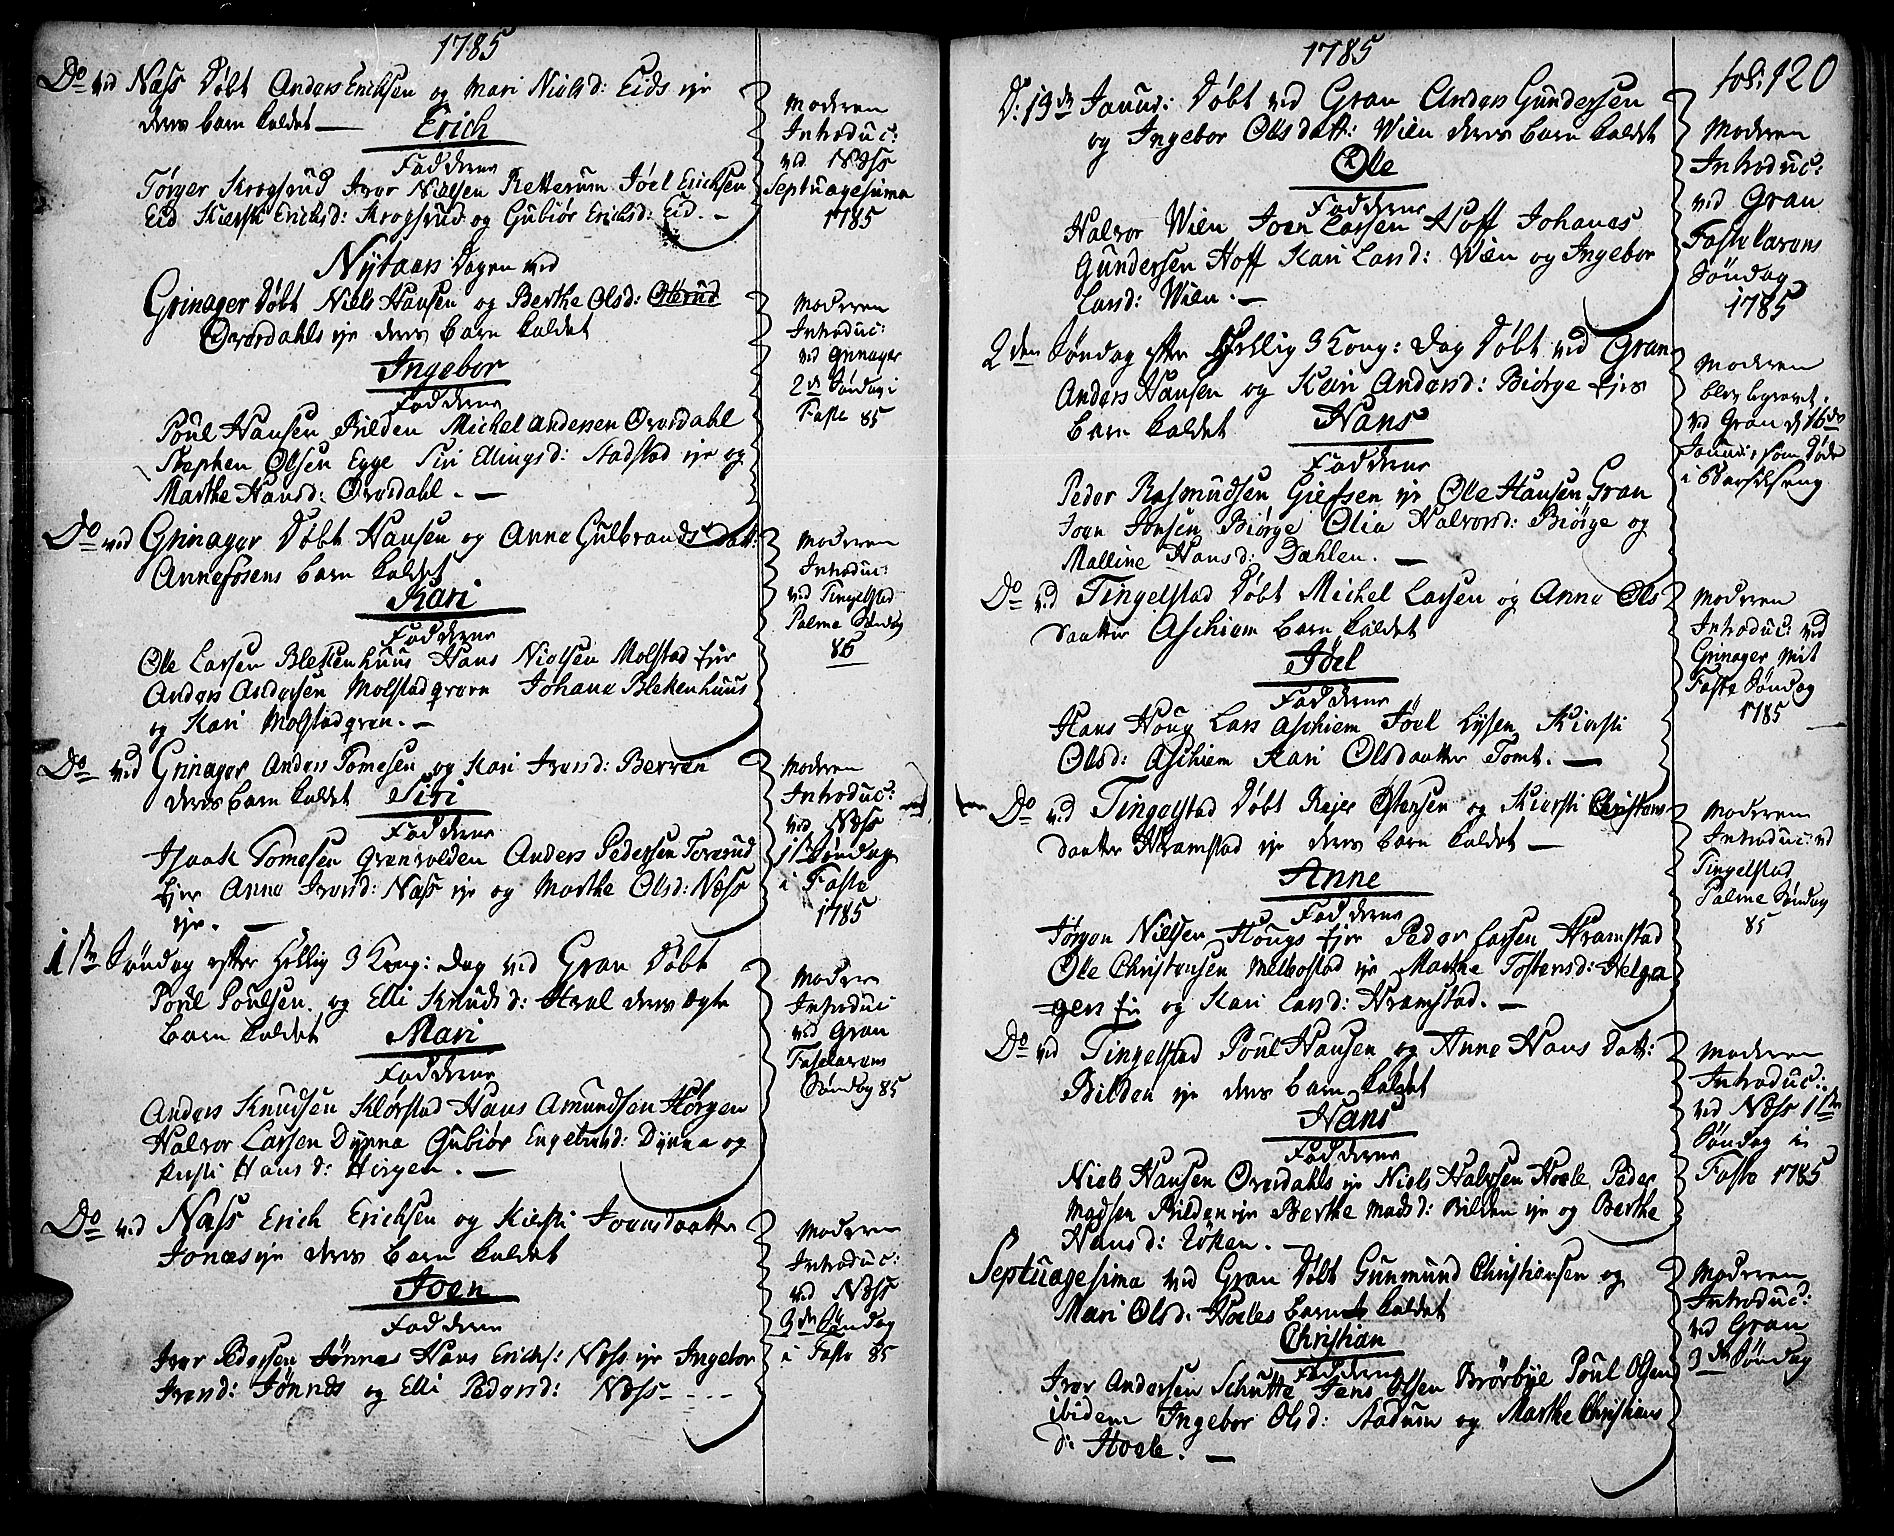 1785
Do ved Næss Døbt Anders Erichsen og Mari Nielsd: Eids eje
deres barn kaldet — Erich
Fadderne
Tørger Krogsrud Iver Nielsen Retterum Joel Erichsen
Eid Kiersti Erichsd: Krogsrud og Gubiør Erichsd: Eid. —
Moderen
Introduc:
ved Næss
Septuagesima
1785
Nytaars Dagen ved
Grinager Døbt Niels Hansen og Berthe Olsd:
Øverdahls eje deres barn kaldet
Ingebor
Fadderne
Poul Hansen Bilden Michel Andersen Øverdahl
Stephen Olsen Egge Siri Ellingsd: Aadstad eje og
Marthe Hansd: Øverdahl. —
Moderen
Introduc:
ved Grinager
2de Søndag i
Faste 85
Do ved Grinager Døbt Hansen og Anne Gulbrands Datt:
Annefosens barn kaldet
Kari
Fadderne
Ole Larsen Blekenhuus Hans Nielsen Molstad
Anders Andersen Molstadqvern Johane Blekenhuus
og Kari Molstadqven. —
Moderen
Introduc:
ved Tingelstad
Palme Søndag
85
Do ved Grinager Anders Tomesen og Kari Iversd: Berven
deres barn kaldet Siri
Fadderne
Isaak Tomesen Granvolden Anders Pedersen
Anne Iversd: Næss eje og Marthe Olsd: Næss
eje. —
Moderen
Introduc:
ved Næss
1ste Søndag
i Faste
1785
1ste Søndag efter Hellig 3 Kong: Dag ved Gran Døbt
Poul Poulsen og Elli Knudsd: Hval deres ægte
barn kaldet Mari
Fadderne
Anders Knudsen Klørstad Hans Amundsen Hørgen
Halvor Larsen Dynna Gubiør Engebretsd: Dynna og
Kersti Hansd: Hørgen. —
Moderen
Introduc:
ved Gran
Fastelavens
Søndag 85
Do ved Næss Erich Erichsen og Kiersti Iversdaatter
Jønæs eje deres barn kaldet
Joen
Fadderne
Iver Pedersen Jønnes Hans Erichs: Næss eje Ingebor
Iversd: Jønnæs og Elli Pedersd: Næss — — —
Moderen
Introduc:
ved Næss
3die Søndag
i Faste 85
1785
fol. 120
D: 19de Januar: Døbt ved Gran Anders Gundersen
og Ingebor Olsdatt: Wien deres barn kaldet
Ole
Fadderne
Halvor Wien Joen Larsen Hoff Johanes
Gundersen Hoff Kari Larsd: Wien og Ingebor
Larsd: Wien. —
Moderen
Introduc:
ved Gran
Fastelavens
Søndag
1785
2den Søndag efter Hellig 3 Kong: Dag Døbt ved Gran
Anders Hansen og Kari Andersd: Biørge Ejes
barn kaldet Hans
Fadderne
Peder Rasmudsen Giefsen eje Ole Hansen Gran
Joen Jonsen Biørge Olia Halvorsd: Biørge og
Malline Hansd: Dæhlen. —
Moderen
blev begravet
ved Gran d. 16de
Januar, som døde
i Barselseng
Do ved Tingelstad Døbt Michel Larsen og Anne Ols
daatter Aschiem barn kaldet
Joel
Fadderne
Hans Haug Lars Aschiem Joel Lysen Kiersti
Olsd: Aschiem Kari Olsdaatter Tomt. —
Moderen
Introduc: ved
Grinager Mit
Faste Søndag
1785
Do ved Tingelstad Døbt Rejer Østensen og Kiersti Christens
daatter Framstad eje deres barn kaldet —
Anne
Fadderne
Jørgen Nielsen Hougs Eje Peder Larsen Framstad
Ole Christensen Melbostad eje Marthe Tostensd: Helga
-gers Ei og Kari Larsd: Framstad. —
Moderen
Introduc: ved
Tingelstad
Palme Søndag
85
Do ved Tingelstad Poul Hansen og Anne Hans Datt:
Bilden eje deres barn kaldet
Hans
Fadderne
Niels Hansen Øverdahls eje Niels Halvorsen Hvale Peder
Madsen Bilden eje Berthe Madsd: Bilden eje og Berthe
Hansd: Løken. —
Moderen
Introduc:
ved Næss 1ste
Søndag in
Faste 1785
Septuagesima ved Gran Døbt Gunmund Christiansen og
Mari Olsd: Hvales barn kaldet
Christian
Fadderne
Iver Andersen Schutte Jens Olsen Brørbye Poul Olsen
ibidem Ingebor Olsd: Aadum og Marthe Christians
d: Hvale. —
Moderen
Introduc:
ved Gran
3die Søndag